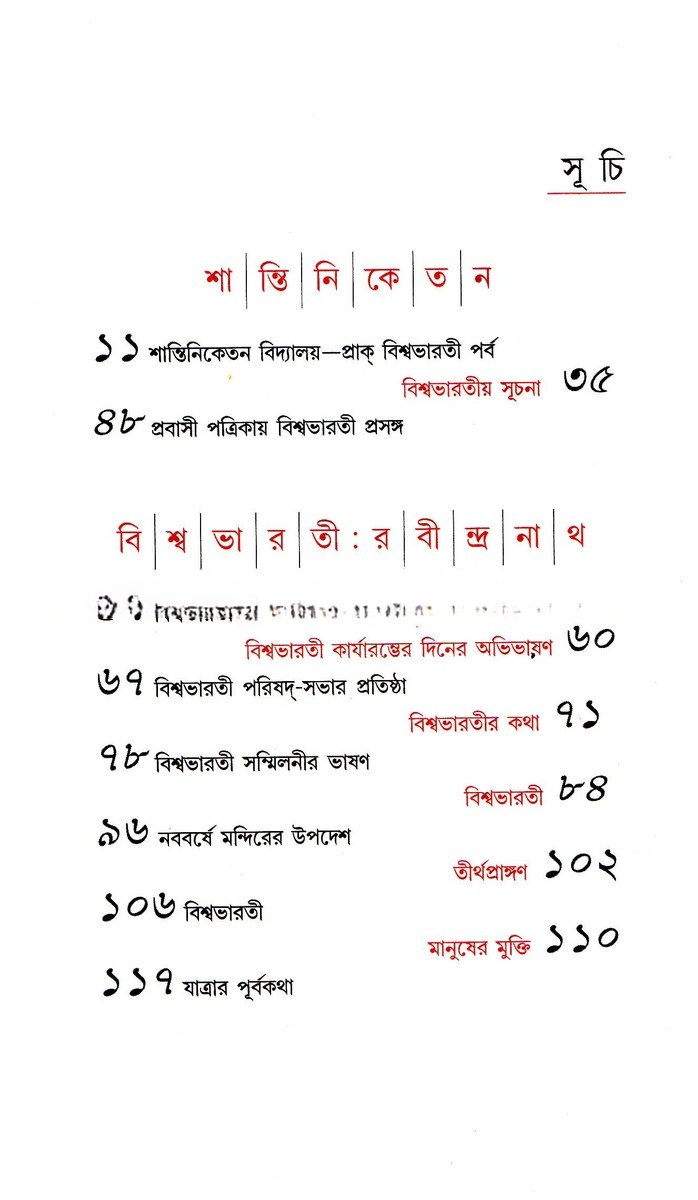 সূ চি
শা | ন্তি | নি | কে | ত | ন
১১ শান্তিনিকেতন বিদ্যালয়—প্রাক্ বিশ্বভারতী পর্ব
বিশ্বভারতীয় সূচনা ৩৫
৪৮ প্রবাসী পত্রিকায় বিশ্বভারতী প্রসঙ্গ
বি | শ্ব | ভা | র | তী : র | বী | ন্দ্র | না | থ
বিশ্বভারতী কার্যারম্ভের দিনের অভিভাষণ ৬০
৬৭ বিশ্বভারতী পরিষদ্-সভার প্রতিষ্ঠা
বিশ্বভারতীর কথা ৭১
৭৮ বিশ্বভারতী সম্মিলনীর ভাষণ
বিশ্বভারতী ৮৪
৯৬ নববর্ষে মন্দিরের উপদেশ
তীর্থপ্রাঙ্গণ ১০২
১০৬ বিশ্বভারতী
মানুষের মুক্তি ১১০
১১৭ যাত্রার পূর্বকথা